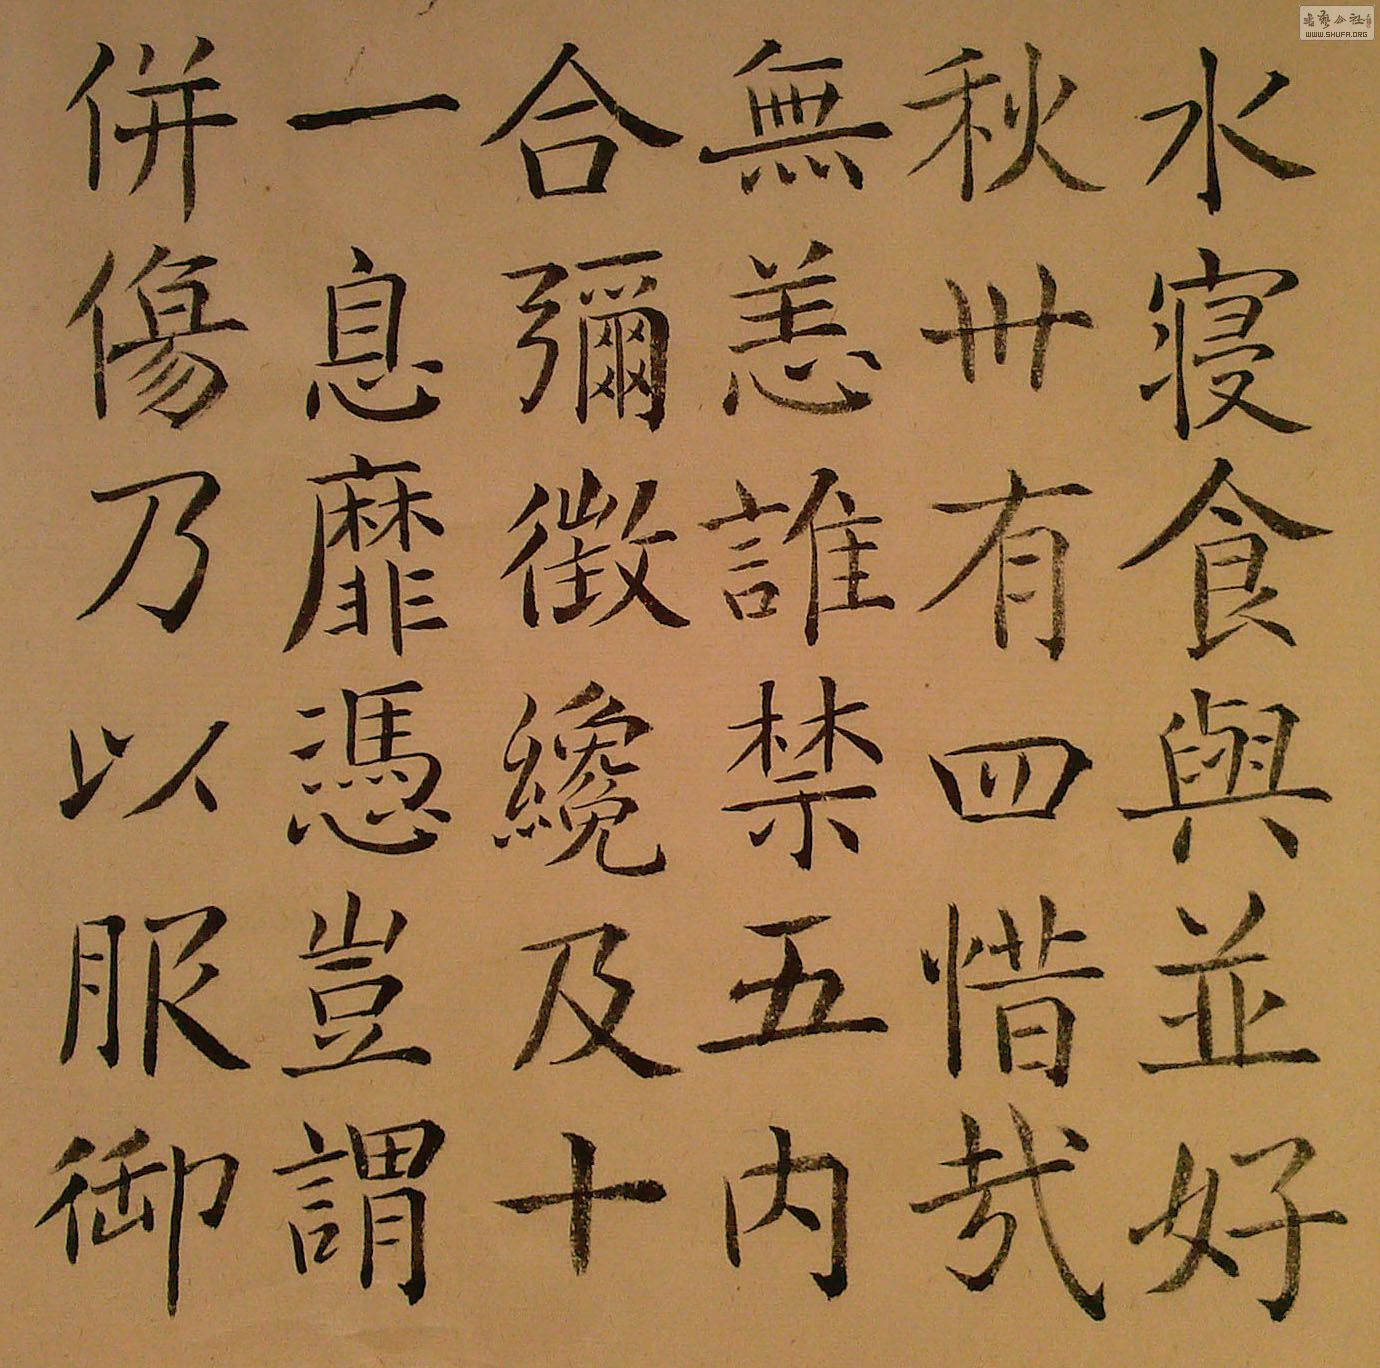 水寝食與並好
秋卅有四惜哉
無恙誰禁五内
合彌徵纔及十
一息靡憑豈謂
併傷乃以服御
WWW.SHUFA.ORG